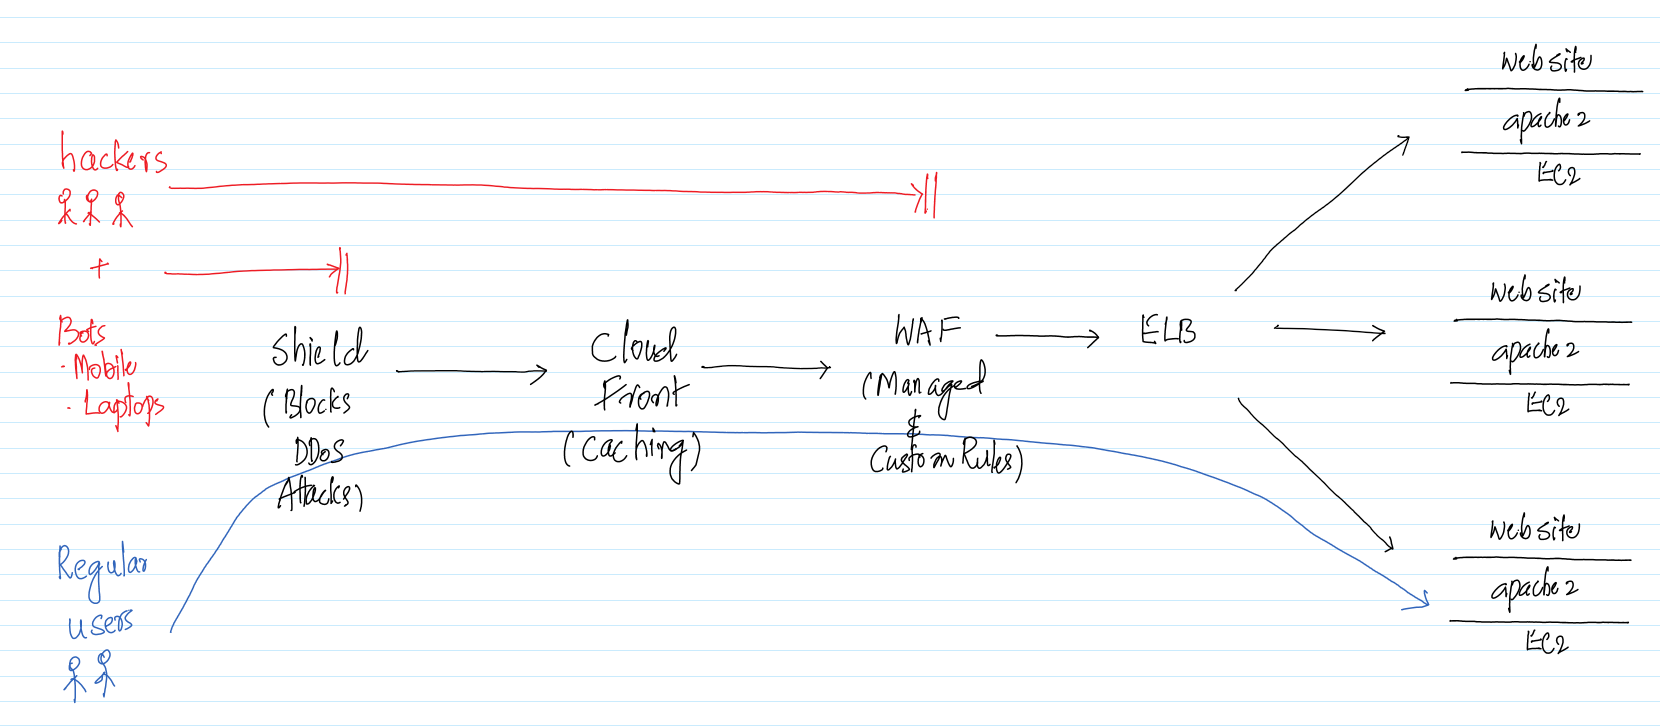 hackers
+
Bots
· Mobile
· Laptops
Shield
(Blocks
DDoS
Attacks)
Cloud
Front
(Caching)
WAF
(Managed
&
Custom Rules)
ELB
website
apache2
EC2
website
apache2
EC2
website
apache2
EC2
Regular
users